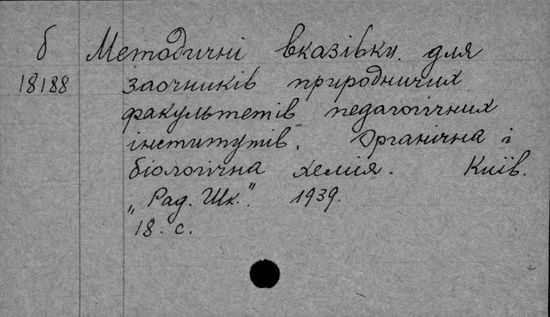 б Методичні вказівки для
18188 заочників природничих
факультетів педагогічних
інститутів. Органічна і
біологічна хемія. Київ.
„Рад. Шк.". 1939.
18. с.